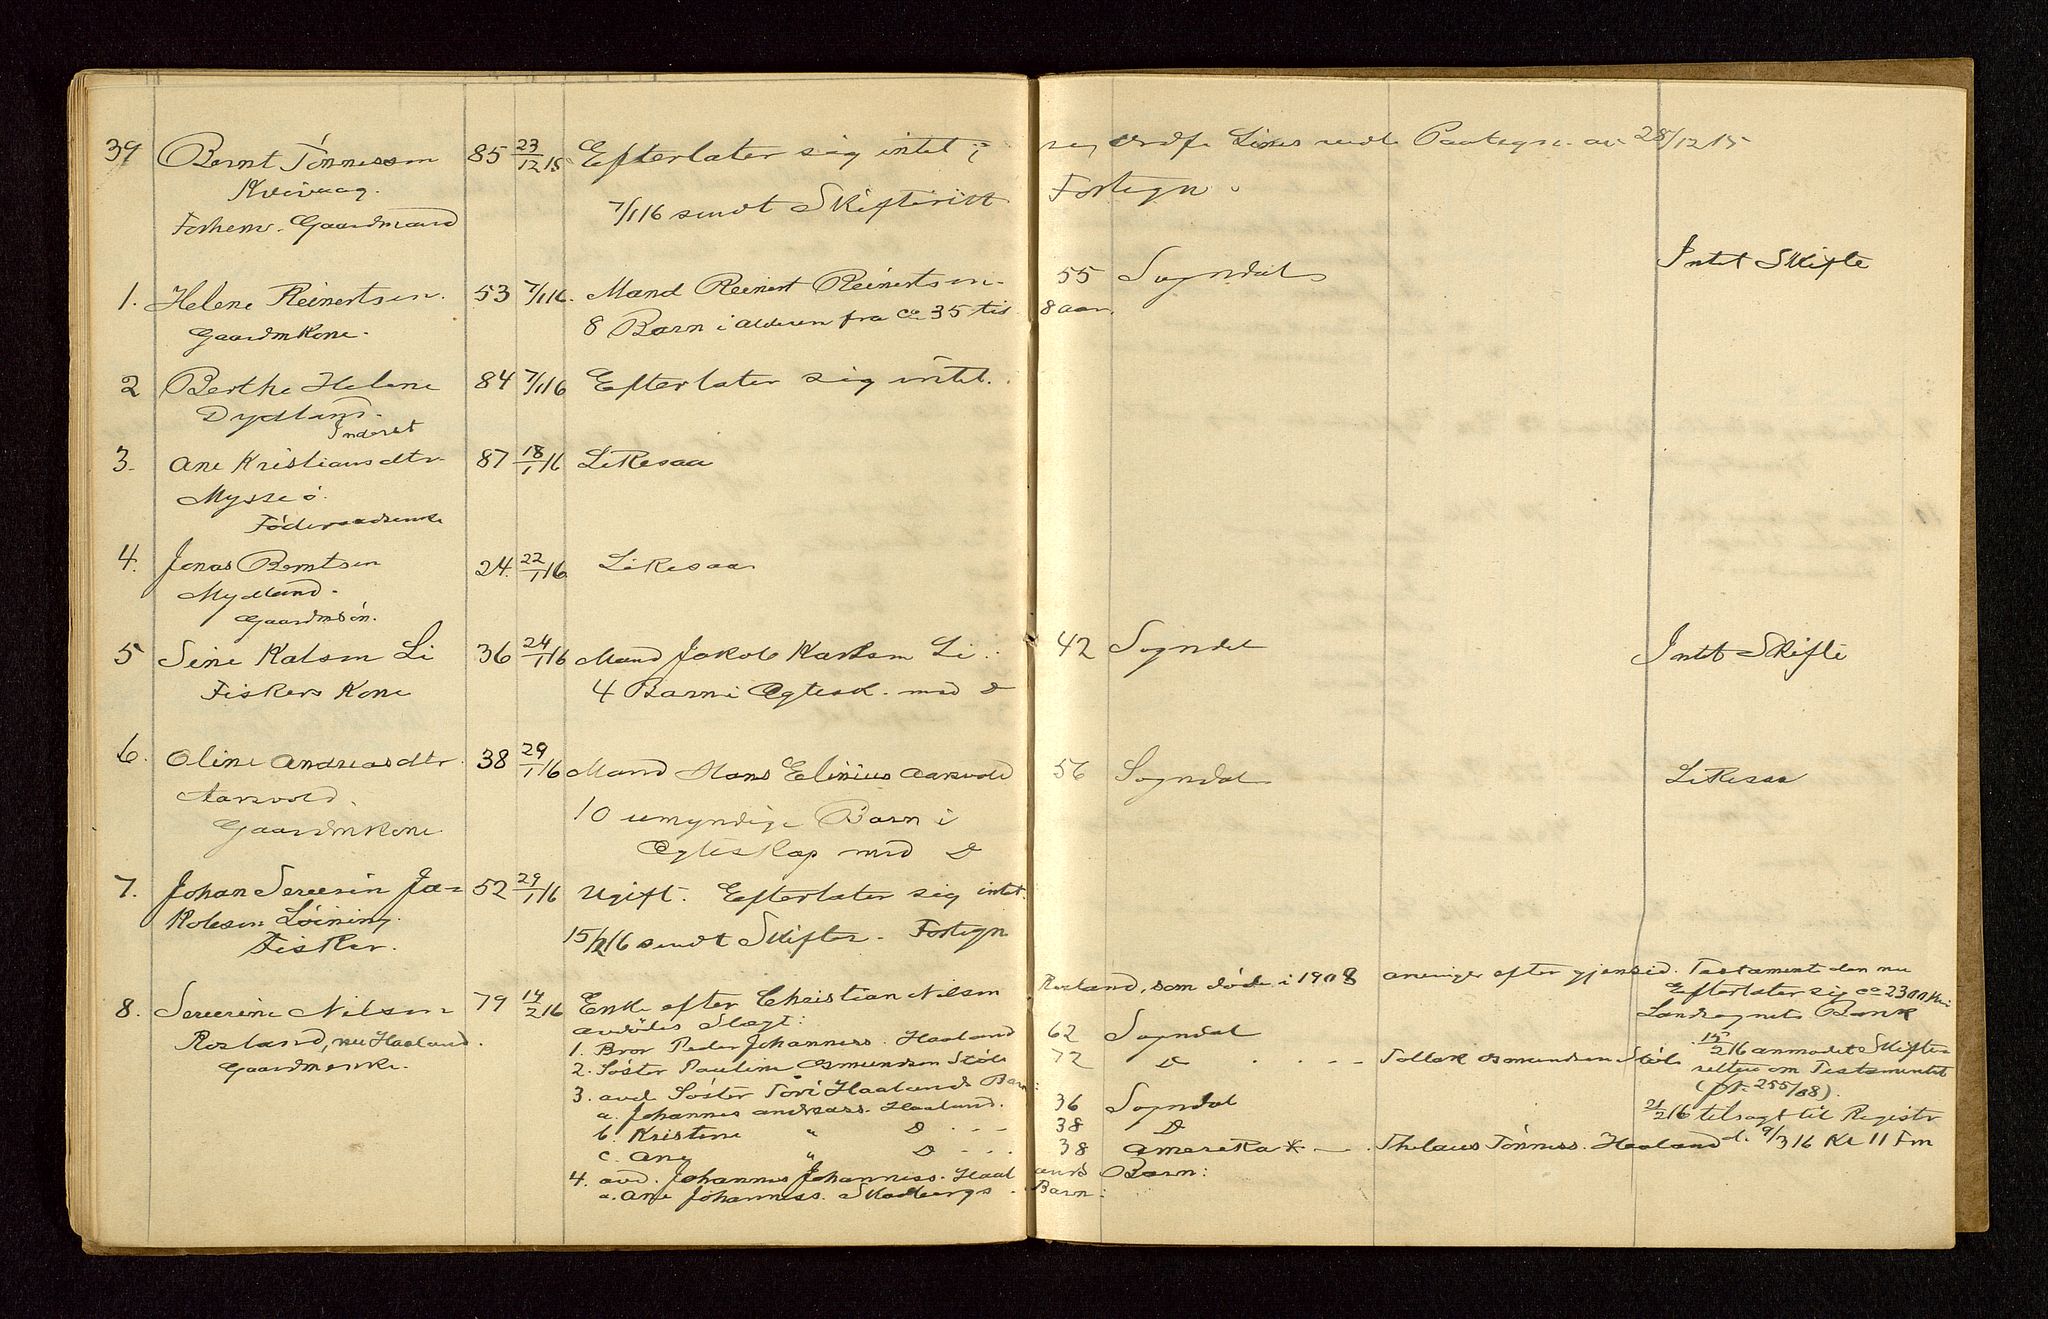 39 Bernt Tönnessen 85 23/12 15 Efterlater sig intet
Kvivaag.
7/1 16 sendt Skifteret
Forhenv. Gaardmand
28/12 15
Fortegn.
1. Helene Reinertsen. 53 7/1 16. Mand Reinert Reinertsen 55 Sogndal Intet Skifte
Gaardmkone. 8 Barn i alderen fra ca 35 til 8 aar.
2 Berthe Helene 84 7/1 16 Efterlater sig intet.
Dydland.
Inderst
3. Ane Kristiansdtr. 87 18/1 16 Likesaa
Mysseö.
Föderaadsenke
4. Jonas Berntsen 24. 22/1 16. Likesaa
Mydland.
Gaardmsön.
5 Sine Kalsen Li 36 24/1 16 Mand Jakob Karlsen Li. 42 Sogndal Intet Skifte
Fiskers Kone 4 Barn i Egtesk. med D
6. Oline Andreasdtr. 38 29/1 16 Mand Hans Elinius Aarsvold 56 Sogndal Likesaa
Aarsvold. 10 umyndige Barn i
Gaardmkone. Egteskap med D
7. Johan Severin Ja= 52 29/1 16 Ugift. Efterlater sig intet.
kobsen Löining. 15/2 16 sendt Skifter. Fortegn
Fisker.
8. Severine Nilsen 79 14/2 16 Enke efter Christian Nilsen Rosland, som döde i 1908 efter gjensid. Testament den nu
Rosland, nu Haaland. avdödes Slægt: Efterlater sig ca 2300 Kr i
Gaardmenke. 1. Bror Peder Johanness. Haaland 62 Sogndal Landsognets Bank
2. Söster Pauline Osmundsen Stöle 72 D . . . — Tollak Osmundsen Stöle 15/2 16 anmodet Skifte=
retten om Testamentet
3. avd Söster Tori Haalands Barn: (pk 255/08).
a. Johannes Andreass. Haaland. 36 Sogndal 21/2 16 tilsagt til Registr
b. Kristine " D . . . 38 D
c. Ane " D . . . 38 Amerika * — . Thelaus Tönness. Haaland d. 9/3 16 Kl 11 Fm
4. avd. Johannes Johanness. Haalands Barn:
a. Ane Johanness. Skadbergs Barn: